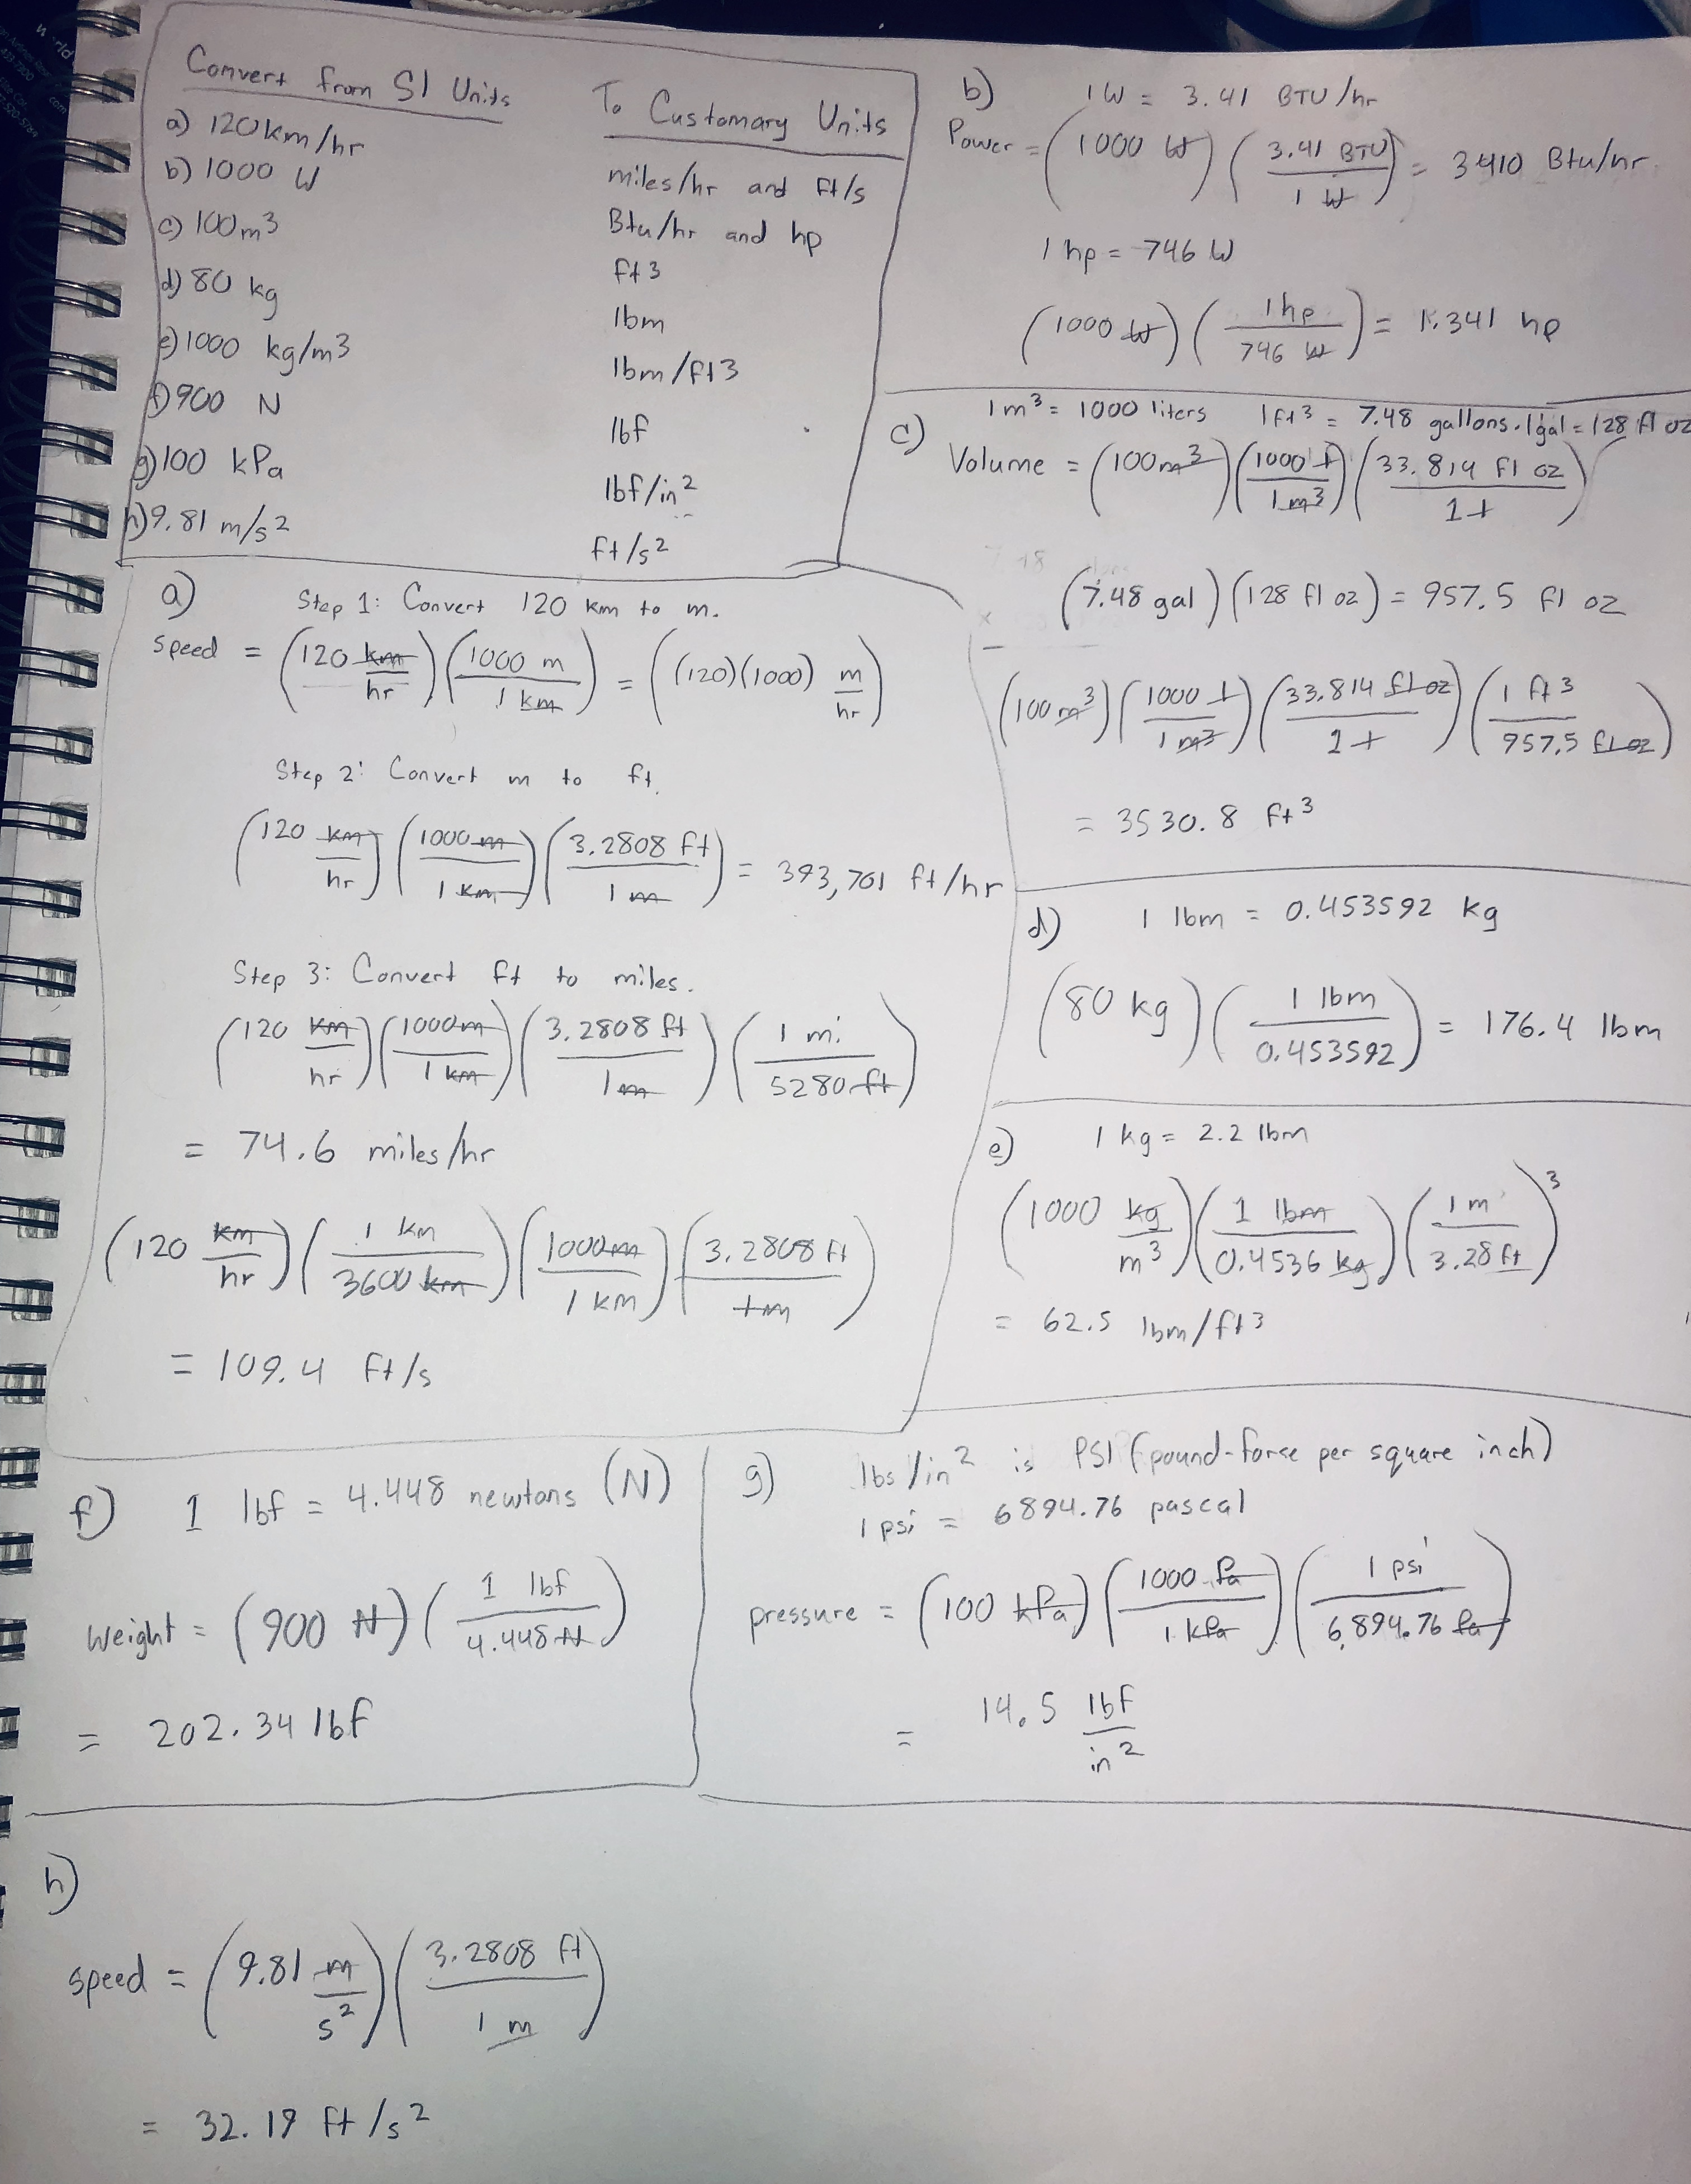 Convert from SI Units
To Customary Units
a) 120 km/hr
miles/hr and ft/s
b) 1000 W
Btu/hr and hp
c) 100m3
ft3
d) 80 kg
lbm
e) 1000 kg/m3
lbm/ft3
f) 900 N
lbf
g) 100 kPa
lbf/in2
h) 9.81 m/s2
ft/s2
a) Step 1: Convert 120 km to m.
speed = (120 km/hr) (1000 m/1 km) = ((120)(1000) m/hr)
Step 2: Convert m to ft.
(120 km/hr) (1000 m/1 km) (3.2808 ft/1 m) = 393,701 ft/hr
Step 3: Convert ft to miles.
(120 km/hr) (1000m/1 km) (3.2808 ft/1m) (1 mi/5280 ft)
= 74.6 miles/hr
(120 km/hr) (1 km/3600 km) (1000m/1 km) (3.2808 ft/1m)
= 109.4 ft/s
b) 1 W = 3.41 BTU/hr
Power = (1000 W) (3.41 BTU/1 W) = 3410 Btu/hr
1 hp = 746 W
(1000 W) (1 hp/746 W) = 1.341 hp
c) 1m3 = 1000 liters 1ft3 = 7.48 gallons. 1gal = 128 fl oz
Volume = (100m3) (1000 l/1m3) (33.814 fl oz/1 l)
(7.48 gal) (128 fl oz) = 957.5 fl oz
(100 m3) (1000 l/1 m3) (33.814 fl oz/1 l) (1 ft3/957.5 fl oz)
= 3530.8 ft3
d) 1 lbm = 0.453592 kg
(80 kg) (1 lbm/0.453592) = 176.4 lbm
e) 1 kg = 2.2 lbm
(1000 kg/m3) (1 lbm/0.4536 kg) (1 m/3.28 ft)3
= 62.5 lbm/ft3
f) 1 lbf = 4.448 newtons (N)
Weight = (900 N) (1 lbf/4.448 N)
= 202.34 lbf
g) lbs/in2 is PSI (pound-forse per square inch)
1 psi = 6894.76 pascal
pressure = (100 kPa) (1000 Pa/1 kPa) (1 psi/6,894.76 Pa)
= 14.5 lbf/in2
h)
speed = (9.81 m/s2) (3.2808 ft/1 m)
= 32.19 ft/s2